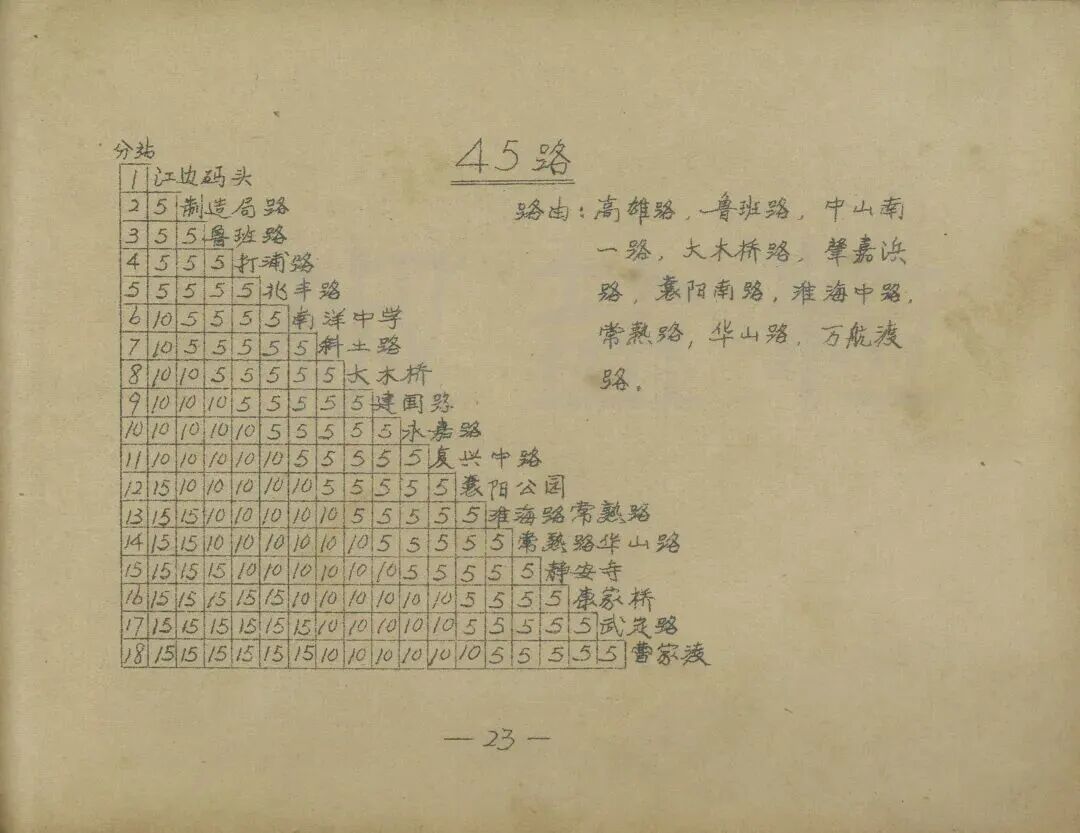 45路
分站
1 江边码头
2 5 制造局路
3 5 5 鲁班路
4 5 5 5 打浦路
5 5 5 5 5 兆丰路
6 10 5 5 5 5 南洋中学
7 10 5 5 5 5 5 斜土路
8 10 10 5 5 5 5 5 大木桥
9 10 10 10 5 5 5 5 5 建国路
10 10 10 10 10 5 5 5 5 5 永嘉路
11 10 10 10 10 10 5 5 5 5 5 复兴中路
12 15 10 10 10 10 10 5 5 5 5 5 襄阳公园
13 15 15 10 10 10 10 10 5 5 5 5 5 淮海路常熟路
14 15 15 10 10 10 10 10 10 5 5 5 5 5 常熟路华山路
15 15 15 15 10 10 10 10 10 10 5 5 5 5 5 静安寺
16 15 15 15 15 15 10 10 10 10 10 10 5 5 5 5 康家桥
17 15 15 15 15 15 15 10 10 10 10 10 5 5 5 5 5 武定路
18 15 15 15 15 15 15 10 10 10 10 10 10 5 5 5 5 5 曹家渡
路由：高雄路，鲁班路，中山南
一路，大木桥路，肇嘉浜
路，襄阳南路，淮海中路，
常熟路，华山路，万航渡
路。
— 23 —